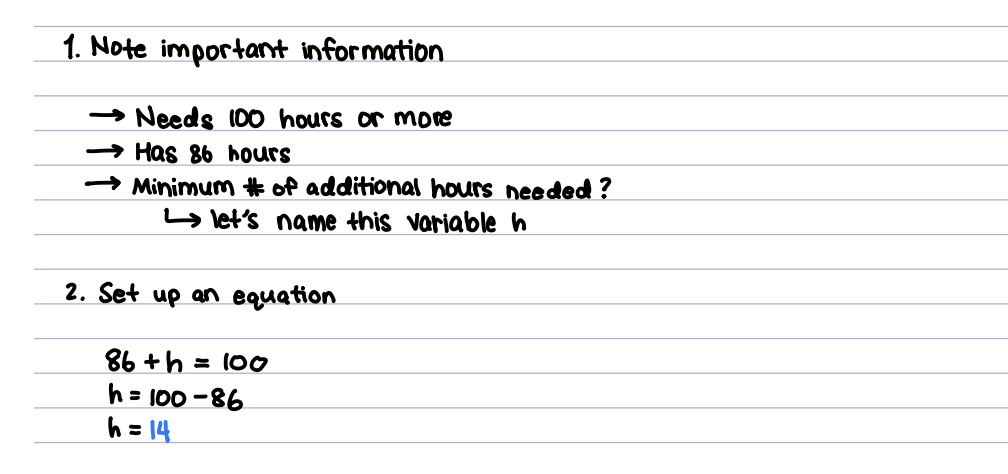 1. Note important information
→ Needs 100 hours or more
→ Has 86 hours
→ Minimum # of additional hours needed?
↳ let's name this variable h
2. Set up an equation
86 + h = 100
h = 100 - 86
h = 14